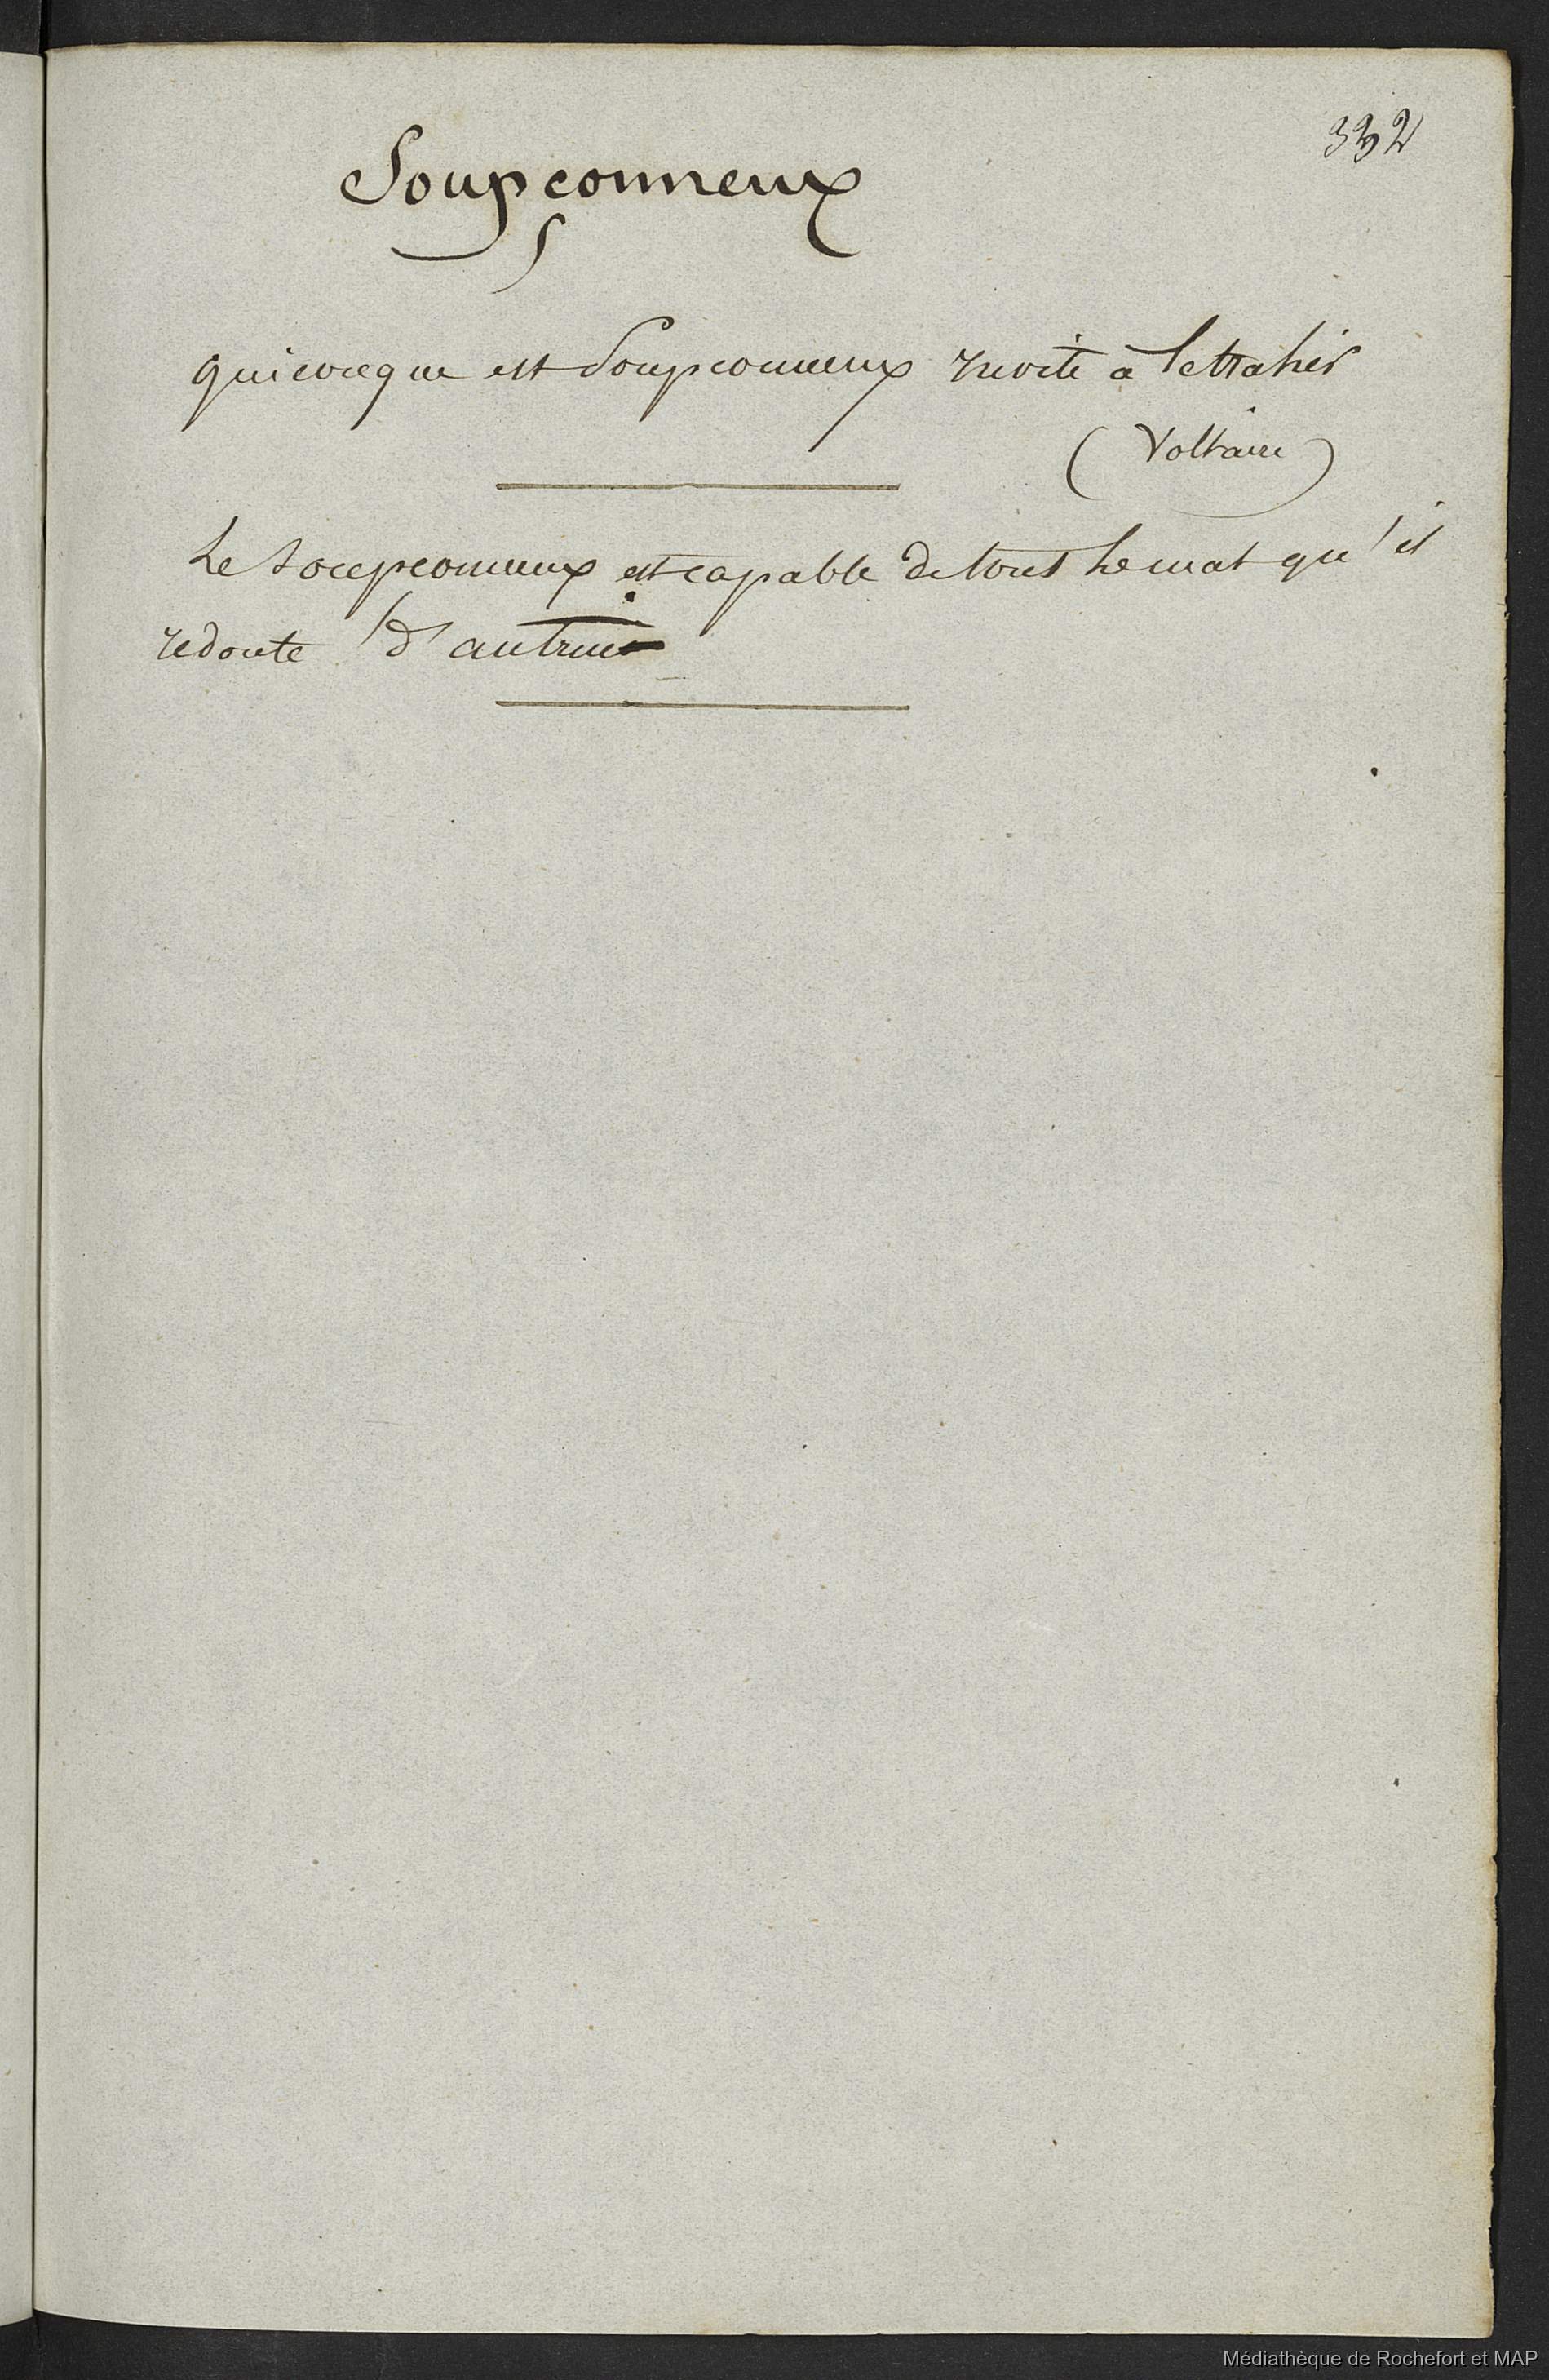 332
Soupçonneux
quiconque est soupconneux invite à le trahir
(Voltaire)
Le soupconneux est capable de tout le mal qu'il
redoute d'autrui
Médiathèque de Rochefort et MAP